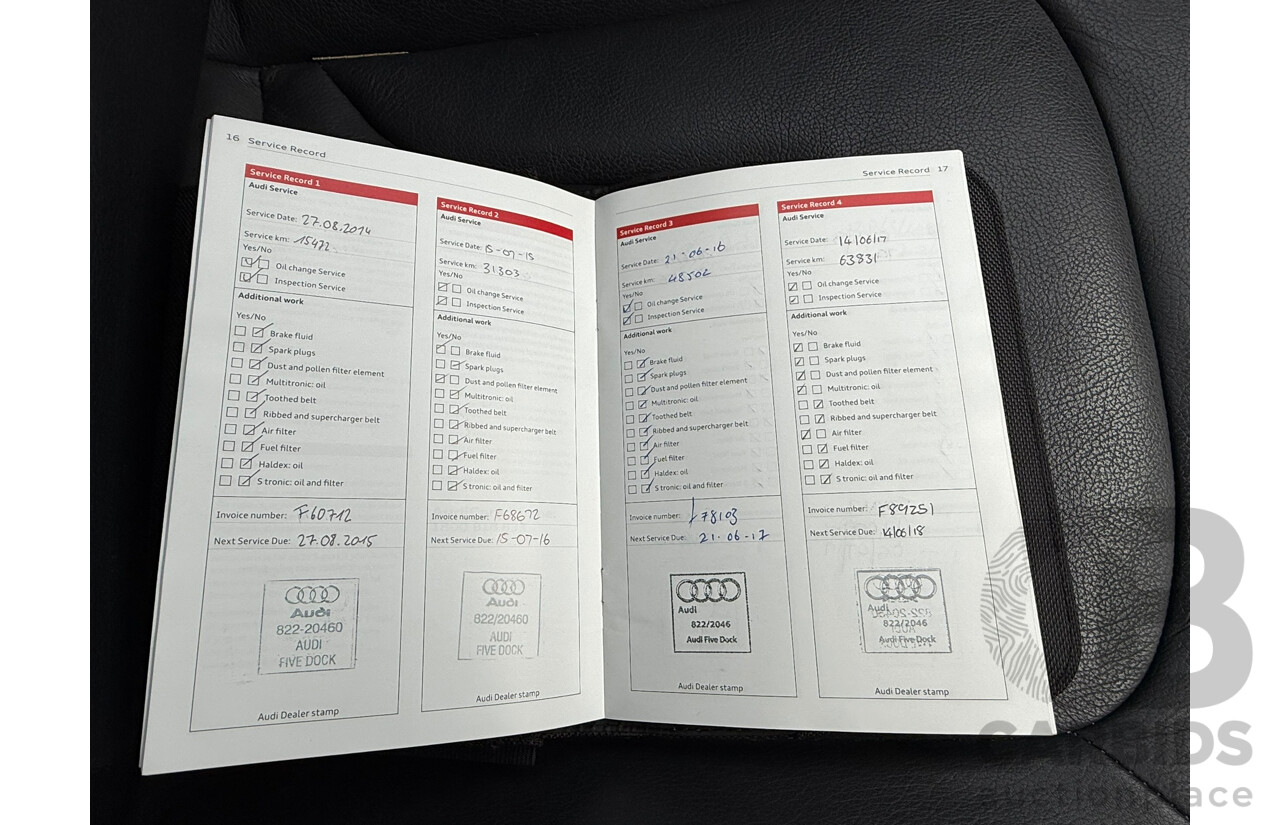 16 Service Record
Service Record 1
Audi Service
Service Date: 27.08.2014
Service km: 15472
Yes/No
Oil change Service
Inspection Service
Additional work
Yes/No
Brake fluid
Spark plugs
Dust and pollen filter element
Multitronic: oil
Toothed belt
Ribbed and supercharger belt
Air filter
Fuel filter
Haldex: oil
S tronic: oil and filter
Invoice number: F60712
Next Service Due: 27.08.2015
Audi
822-20460
AUDI
FIVE DOCK
Audi Dealer stamp
Service Record 2
Audi Service
Service Date: 15-07-15
Service km: 31303
Yes/No
Oil change Service
Inspection Service
Additional work
Yes/No
Brake fluid
Spark plugs
Dust and pollen filter element
Multitronic: oil
Toothed belt
Ribbed and supercharger belt
Air filter
Fuel filter
Haldex: oil
S tronic: oil and filter
Invoice number: F68672
Next Service Due: 15-07-16
Audi
822/20460
AUDI
FIVE DOCK
Audi Dealer stamp
Service Record 17
Service Record 3
Audi Service
Service Date: 21-06-16
Service km: 48502
Yes/No
Oil change Service
Inspection Service
Additional work
Yes/No
Brake fluid
Spark plugs
Dust and pollen filter element
Multitronic: oil
Toothed belt
Ribbed and supercharger belt
Air filter
Fuel filter
Haldex: oil
S tronic: oil and filter
Invoice number: 178103
Next Service Due: 21-06-17
Audi
822/2046
Audi Five Dock
Audi Dealer stamp
Service Record 4
Audi Service
Service Date: 14/06/17
Service km: 63831
Yes/No
Oil change Service
Inspection Service
Additional work
Yes/No
Brake fluid
Spark plugs
Dust and pollen filter element
Multitronic: oil
Toothed belt
Ribbed and supercharger belt
Air filter
Fuel filter
Haldex: oil
S tronic: oil and filter
Invoice number: F89251
Next Service Due: 14/06/18
Audi
822/2046
Audi Five Dock
Audi Dealer stamp